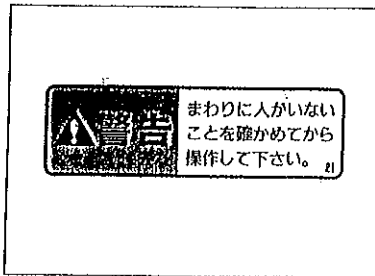 警告
まわりに人がいない
ことを確かめてから
操作して下さい。
21